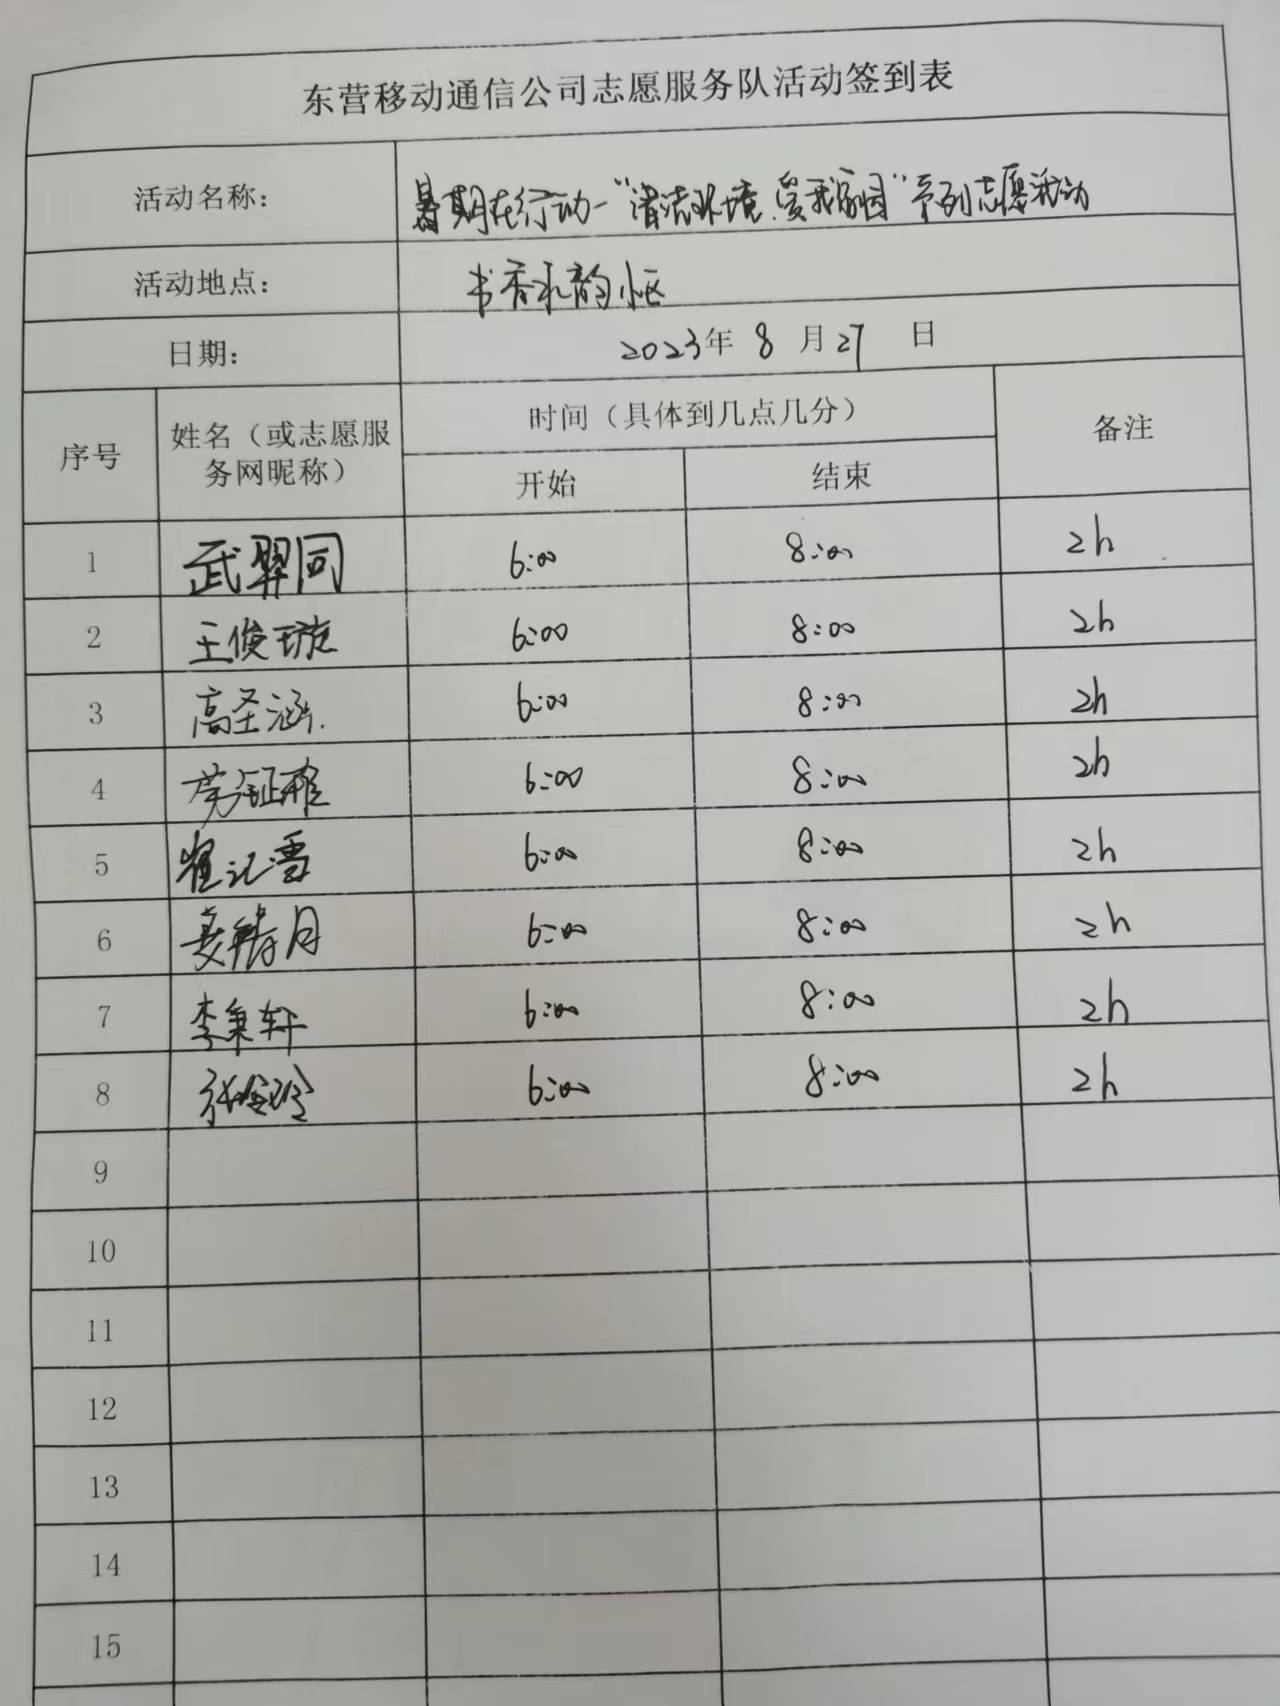 东营移动通信公司志愿服务队活动签到表
活动名称: 暑期在行动—“清洁环境,爱我家园”系列志愿活动
活动地点: 书香水韵小区
日期: 2023年 8 月 27 日
序号 姓名（或志愿服务网昵称） 时间（具体到几点几分） 备注
开始 结束
1 武羿同 6:00 8:00 2h
2 王俊璇 6:00 8:00 2h
3 高圣涵. 6:00 8:00 2h
4 6:00 8:00 2h
5 6:00 8:00 2h
6 月 6:00 8:00 2h
7 李秉轩 6:00 8:00 2h
8 张玲玲 6:00 8:00 2h
9
10
11
12
13
14
15